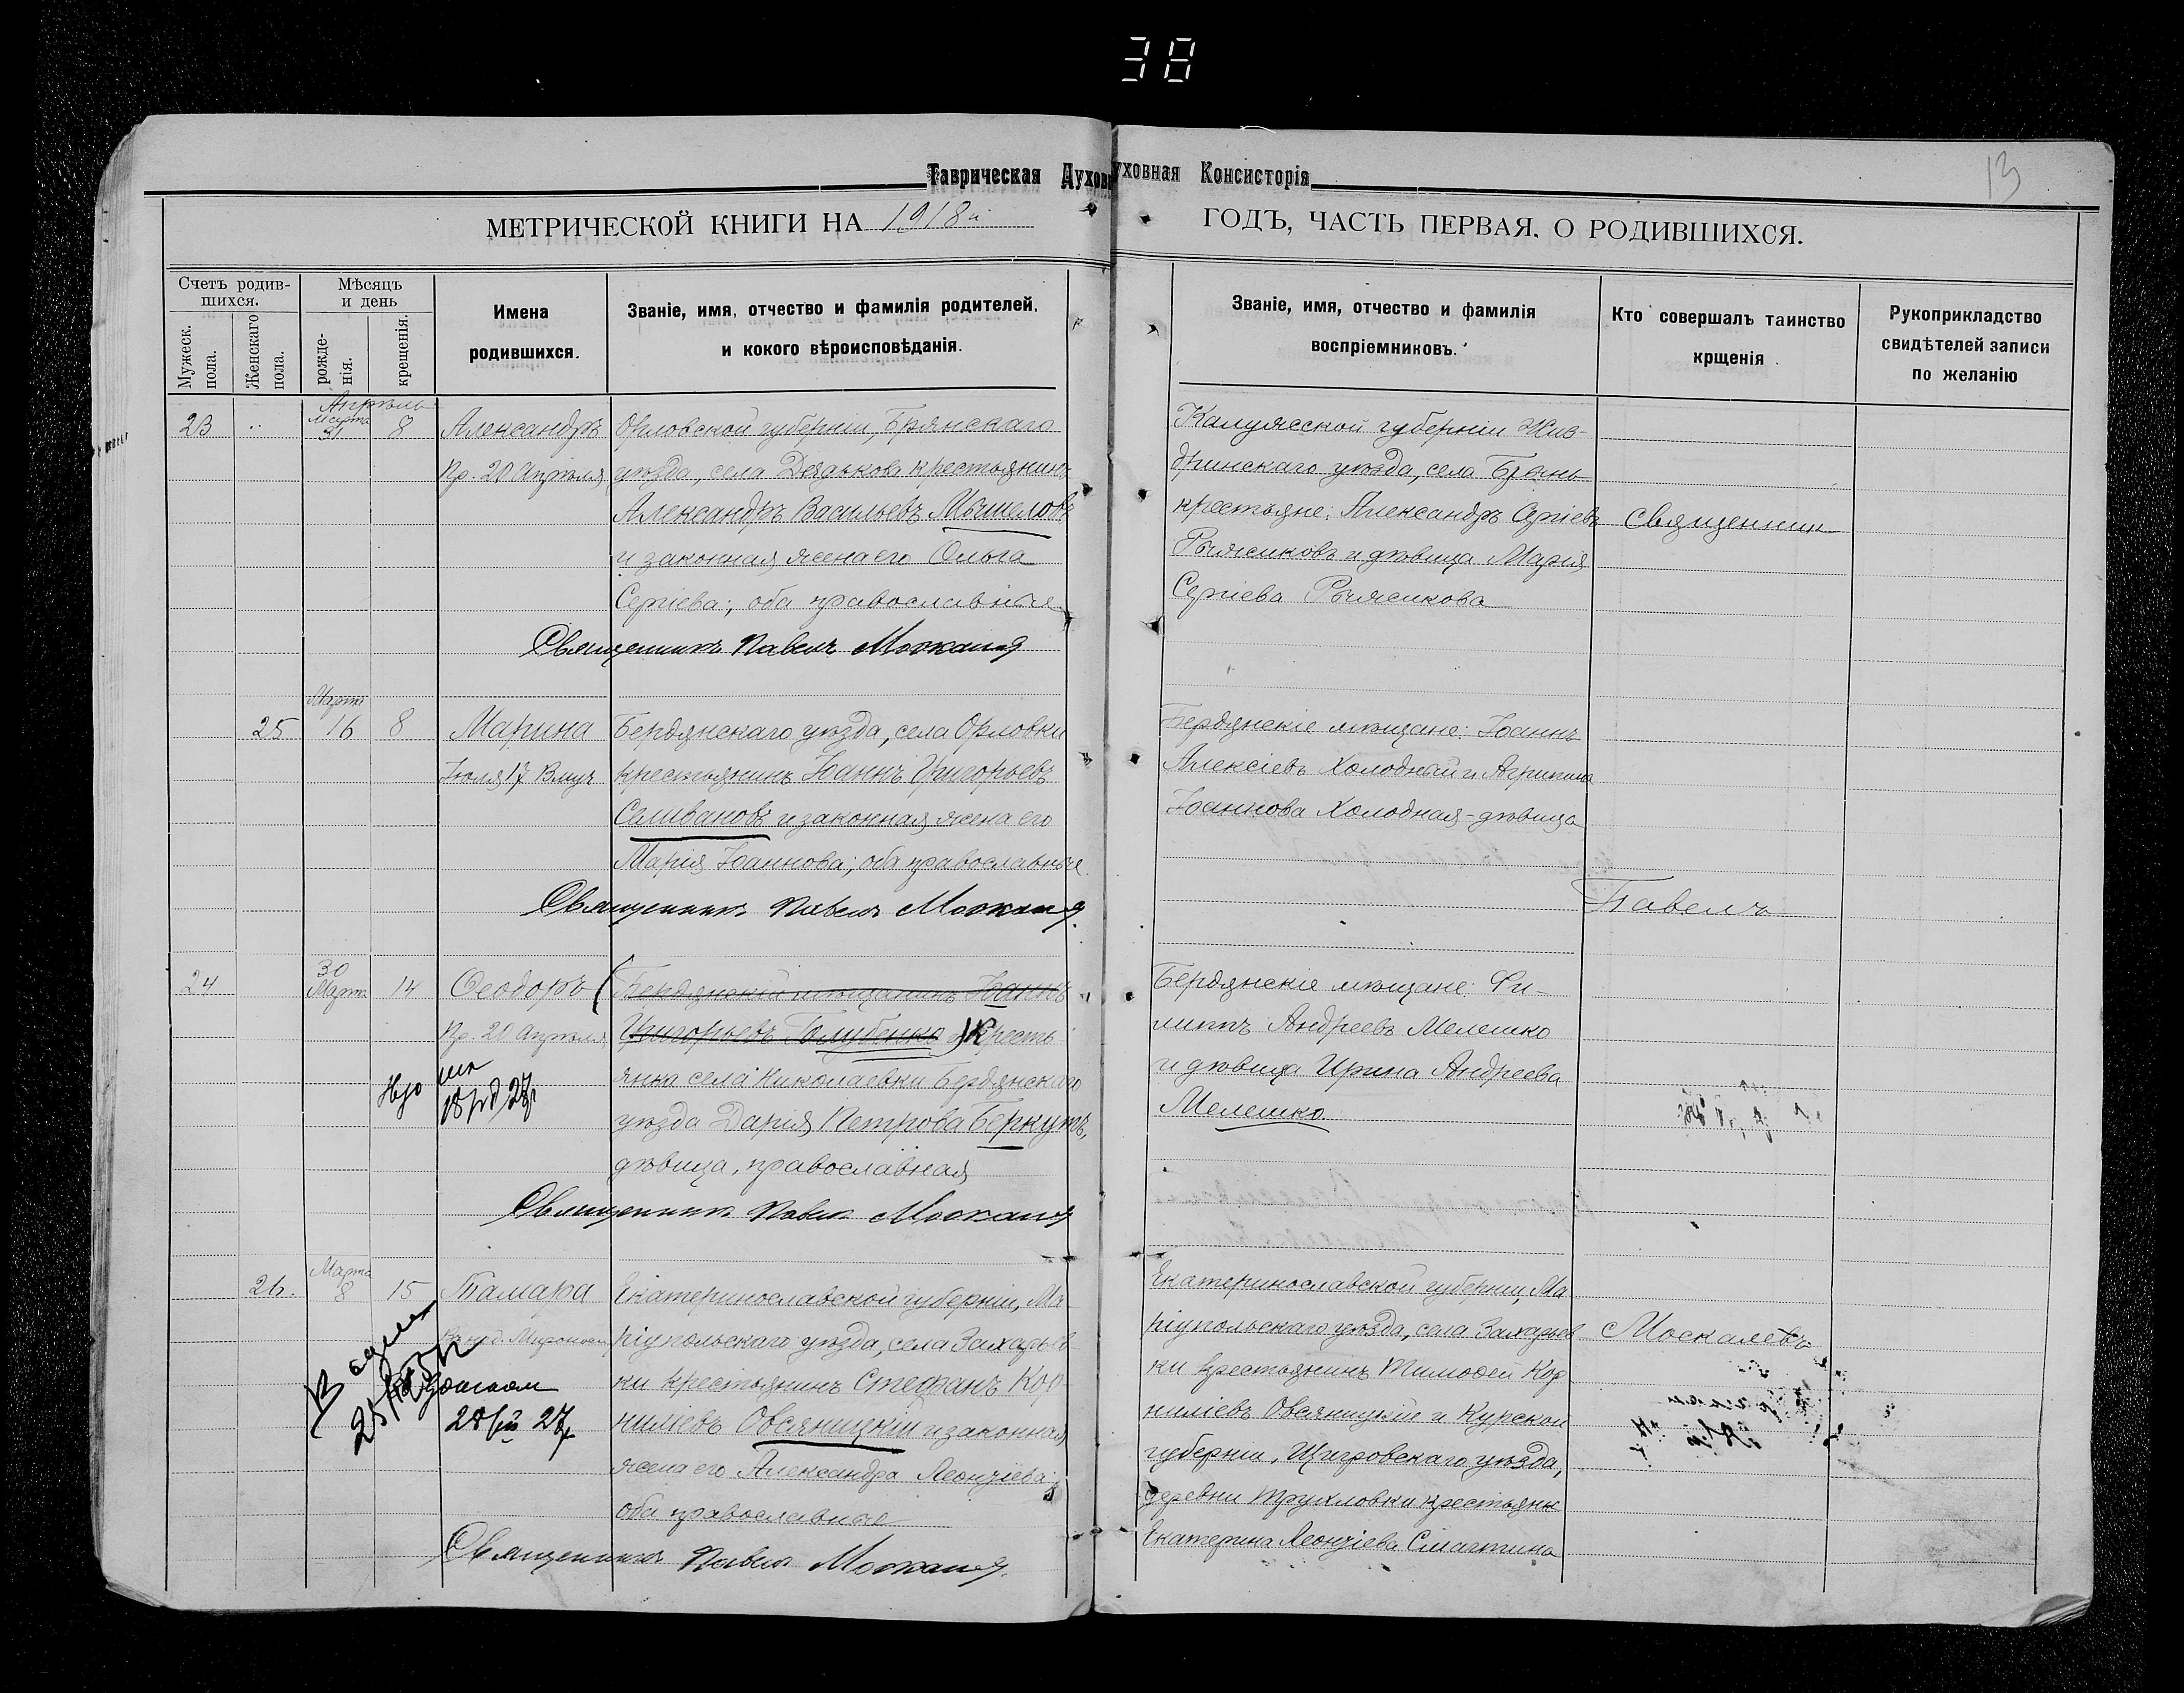 38
Таврическая Духов уховная Консисторія
13
МЕТРИЧЕСКОЙ КНИГИ НА 1918 й
ГОДЪ, ЧАСТЬ ПЕРВАЯ. О РОДИВШИХСЯ.
Счетъ родив-
шихся.
Мужеск.
пола.
Женскаго
пола.
Мѣсяцъ
и день
рожде-
нія.
крещенія.
Имена
родившихся.
Званіе, имя, отчество и фамилія родителей,
и кокого вѣроисповѣданія.
Званіе, имя, отчество и фамилія
воспріемниковъ.
Кто совершалъ таинство
крщенія
Рукоприкладство
свидѣтелей записи
по желанію
Апрѣль
23 Марта 31 8 Александръ
Пр. 20 Апрѣля
Орловской губерніи, Брянскаго
уѣзда, села Дедькова крестьянинъ
Александръ Васильевъ Мышеловъ
и законная жена его Ольга
Сергіева; оба православные
Священникъ Павелъ
Калужсской губерніи Жиз-
дринскаго уѣзда, села Брынь
крестьяне: Александръ Сергіевъ
Рыжиковъ и дѣвица Марія
Сергіева Рыжикова
Священник
25 Марта 16 8 Марина
Іюля 17
Бердянскаго уѣзда, села Орловки
крестьянинъ Іоаннъ Григорьевъ
Селивановъ и законная жена его
Марія Іоаннова; оба православные
Священникъ Павелъ
Бердянскіе мѣщане: Іоаннъ
Алексіевъ Холодный и Агрипина
Іоаннова Холодная-дѣвица
Павелъ
24 30 Марта 14 Ѳеодоръ
Пр. 20 Апрѣля
(Бердянскій мѣщанинъ Іоаннъ
Григорьевъ Голубенко) Кресть
янка села Николаевки Бердянскаго
уѣзда Дарія Петрова Беркутъ,
дѣвица, православная
Священникъ Павелъ
Бердянскіе мѣщане: Фи-
липпъ Андреевъ Мелешко
и дѣвица Ирина Андреева
Мелешко
26. Марта 8 15 Тамара
Екатеринославской губерніи, Ма-
ріупольскаго уѣзда, села Захарьев
ки крестьянинъ Стефанъ Кор
ниліевъ Овсяницкій и законная
жена его Александра Леонтіева;
оба православные
Священникъ Павелъ
Екатеринославской губерніи, Ма
ріупольскаго уѣзда, села Захарьев
ки крестьянинъ Тимоѳей Кор
ниліевъ Овсяницкій и Курской
губерніи, Щигровскаго уѣзда,
деревни
Екатерина Леонтіева
Москалевъ